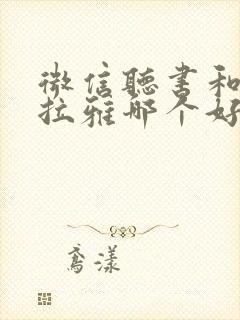 微信聽書和
拉雅哪个好
鸢漾